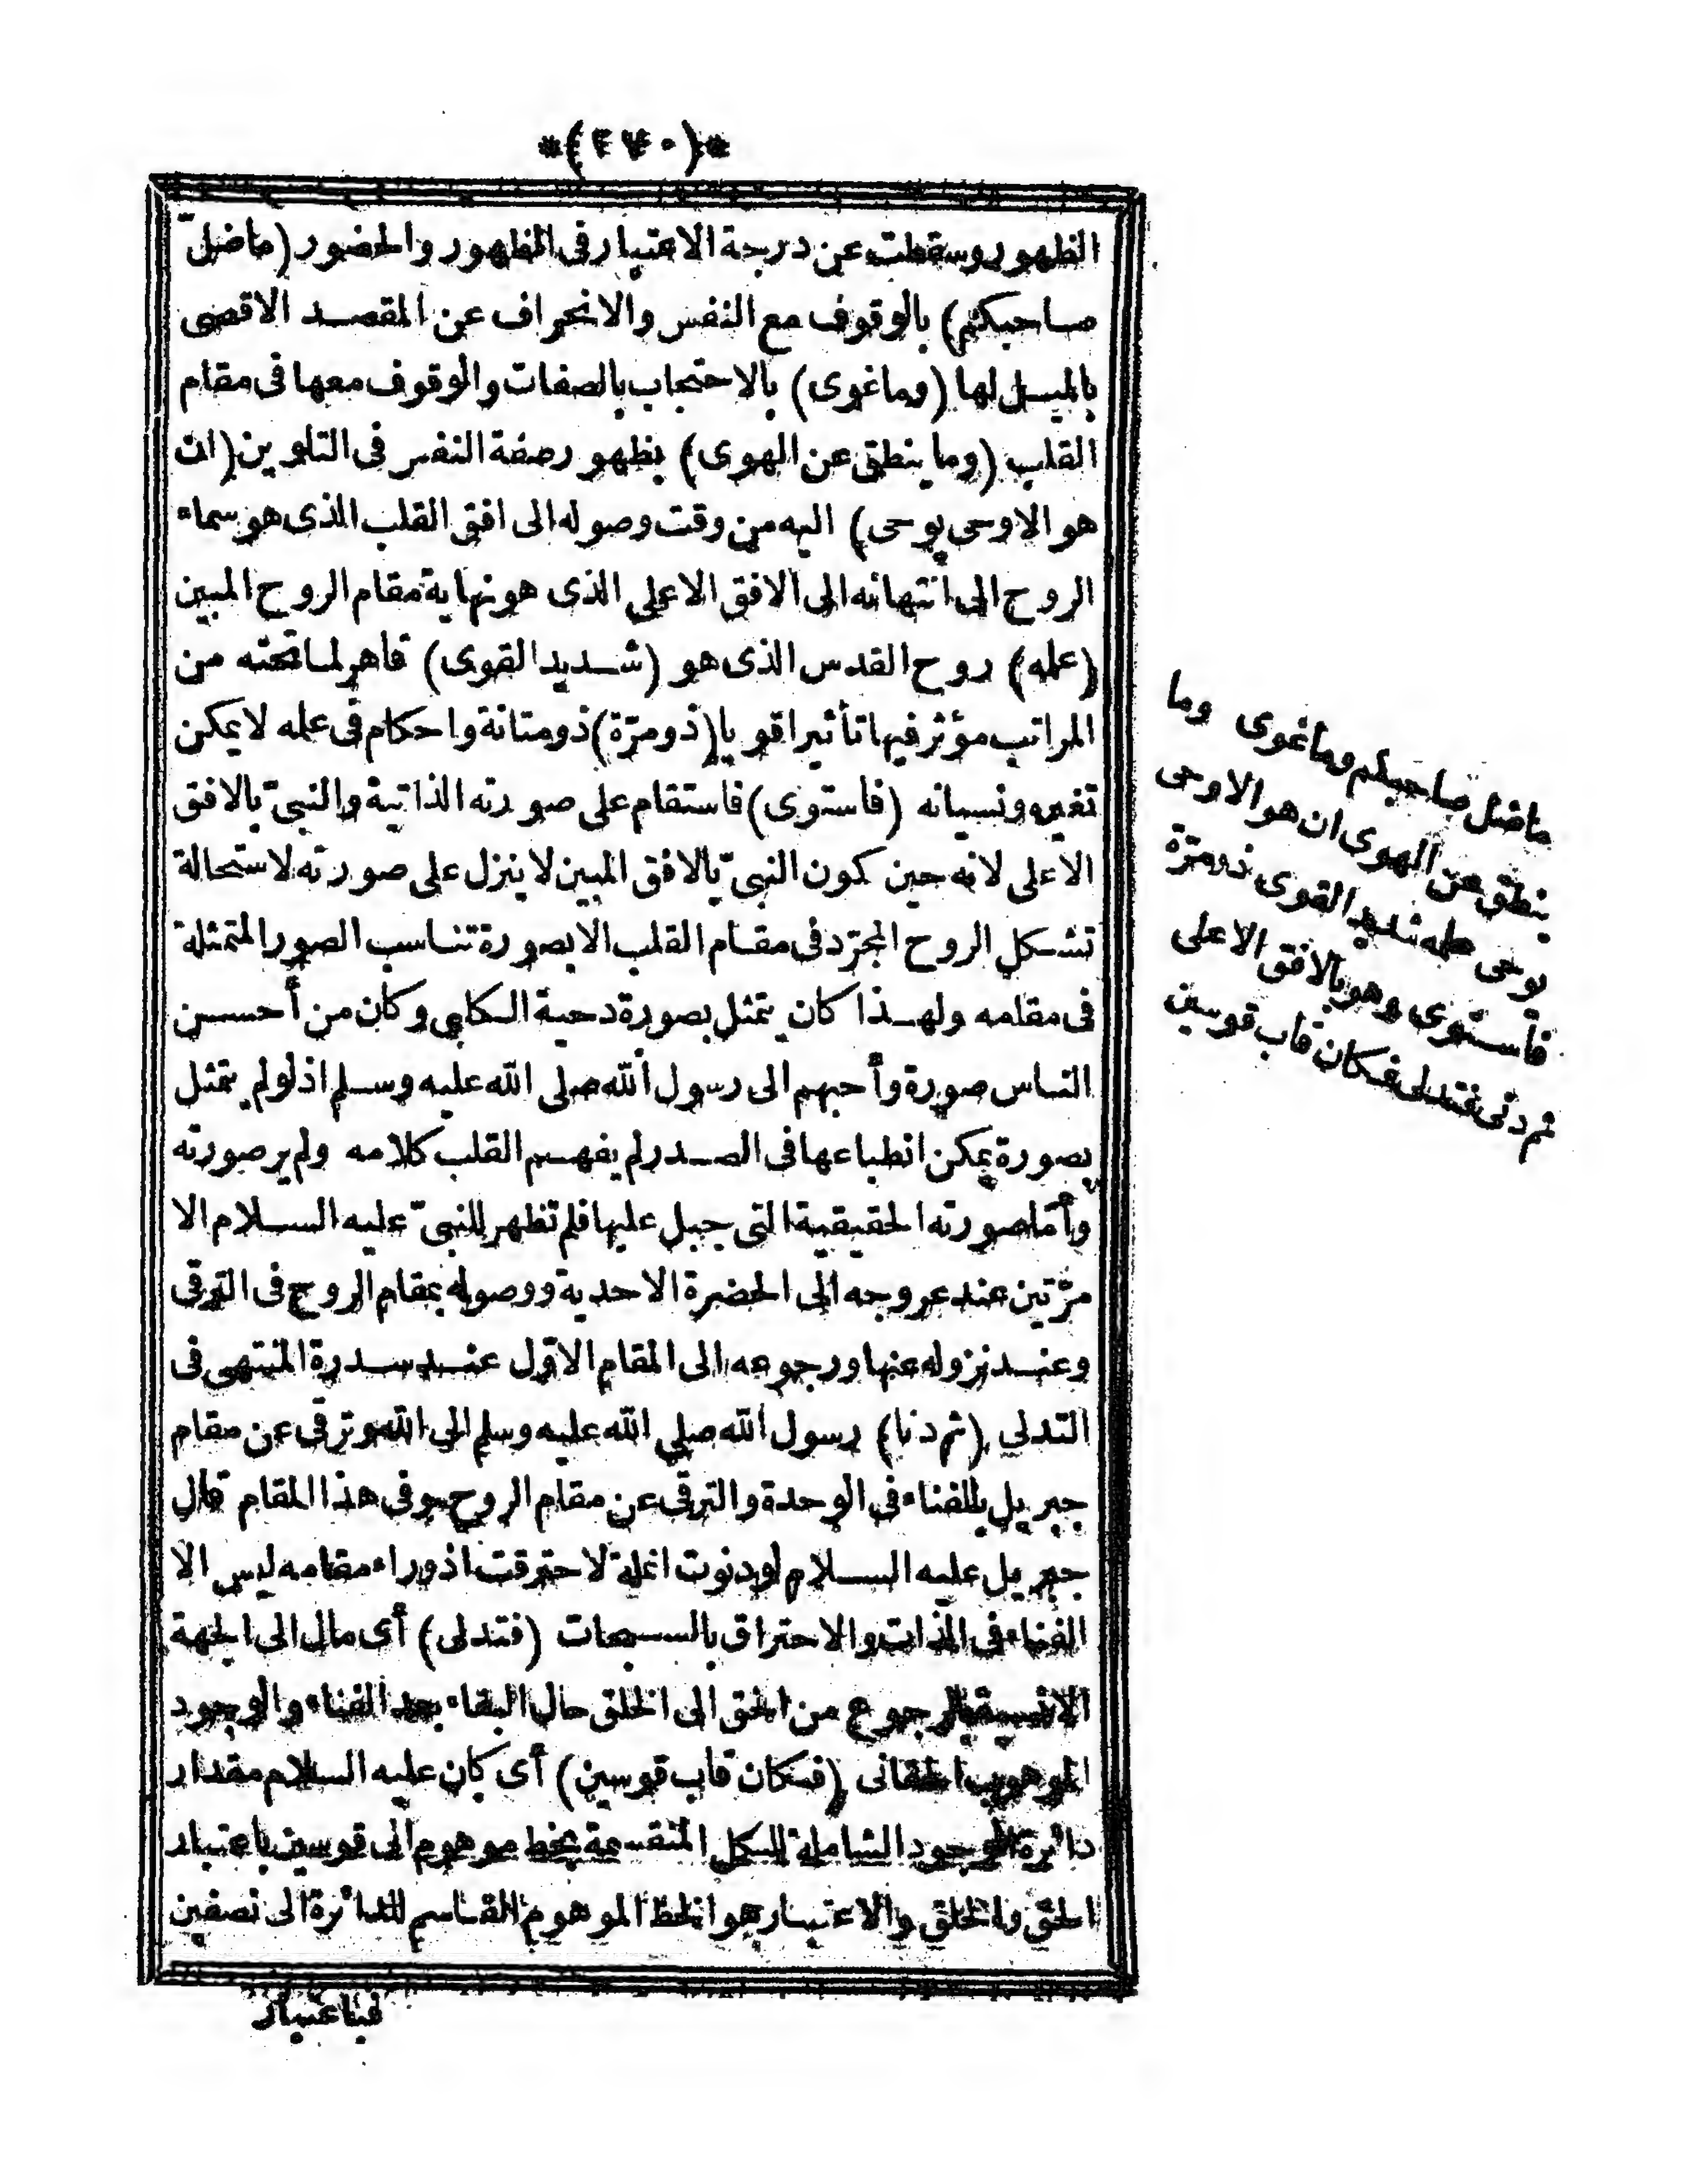 *(٢٧٠)*
الظهور وسقطت عن درجة الاعتبار فى الظهور والحضور (ماضلّ
صاحبكم) بالوقوف مع النفس والانحراف عن المقصد الاقصى
بالميل لها (وما غوى) بالاحتجاب بالصفات والوقوف معها فى مقام
القلب (وما ينطق عن الهوى) بظهور صفة النفس فى التلوين (ان
هو الا وحى يوحى) اليه من وقت وصوله الى افق القلب الذى هو سماء
الروح الى انتهائه الى الافق الاعلى الذى هو نهاية مقام الروح المبين
(علمه) روح القدس الذى هو (شديد القوى) قاهر لما تحته من
المراتب مؤثر فيها تأثيرا قويا (ذو مرّة) ذو متانة واحكام فى علمه لا يمكن
تغيره ونسيانه (فاستوى) فاستقام على صورته الذاتية والنبىّ بالافق
الاعلى لانه حين كون النبىّ بالافق المبين لا ينزل على صورته لاستحالة
تشكل الروح المجرّد فى مقام القلب الا بصورة تناسب الصور المتمثلة
فى مقامه ولهذا كان يتمثل بصورة دحية الكلبى وكان من أحسن
الناس صورة وأحبهم الى رسول الله صلى الله عليه وسلم اذ لو لم يتمثل
بصورة يمكن انطباعها فى الصدر لم يفهم القلب كلامه ولم ير صورته
وأمّا صورته الحقيقية التى جبل عليها فلم تظهر للنبىّ عليه السلام الا
مرّتين عند عروجه الى الحضرة الاحدية ووصوله بمقام الروح فى الترقى
وعند نزوله عنها ورجوعه الى المقام الاوّل عند سدرة المنتهى فى
التدلى (ثم دنا) رسول الله صلى الله عليه وسلم الى الله وترقى عن مقام
جبريل بالفناء فى الوحدة والترقى عن مقام الروح وفى هذا المقام قال
جبريل عليه السلام لو دنوت انملة لاحترقت اذ وراء مقامه ليس الا
الفناء فى الذات والاحتراق بالسبحات (فتدلى) أى مال الى الجهة
الانسية بالرجوع من الحق الى الخلق حال البقاء بعد الفناء والوجود
الموهوب الحقانى (فكان قاب قوسين) أى كان عليه السلام مقدار
دائرة الوجود الشاملة للكل المنقسمة بخط موهوم الى قوسين باعتبار
الحق والخلق والاعتبار هو الخط الموهوم القاسم للدائرة الى نصفين
فباعتبار
ماضل صاحبكم وما غوى وما
ينطق عن الهوى ان هو الا وحى
يوحى علمه شديد القوى ذو مرّة
فاستوى وهو بالافق الاعلى
ثم دنى فتدلى فكان قاب قوسين